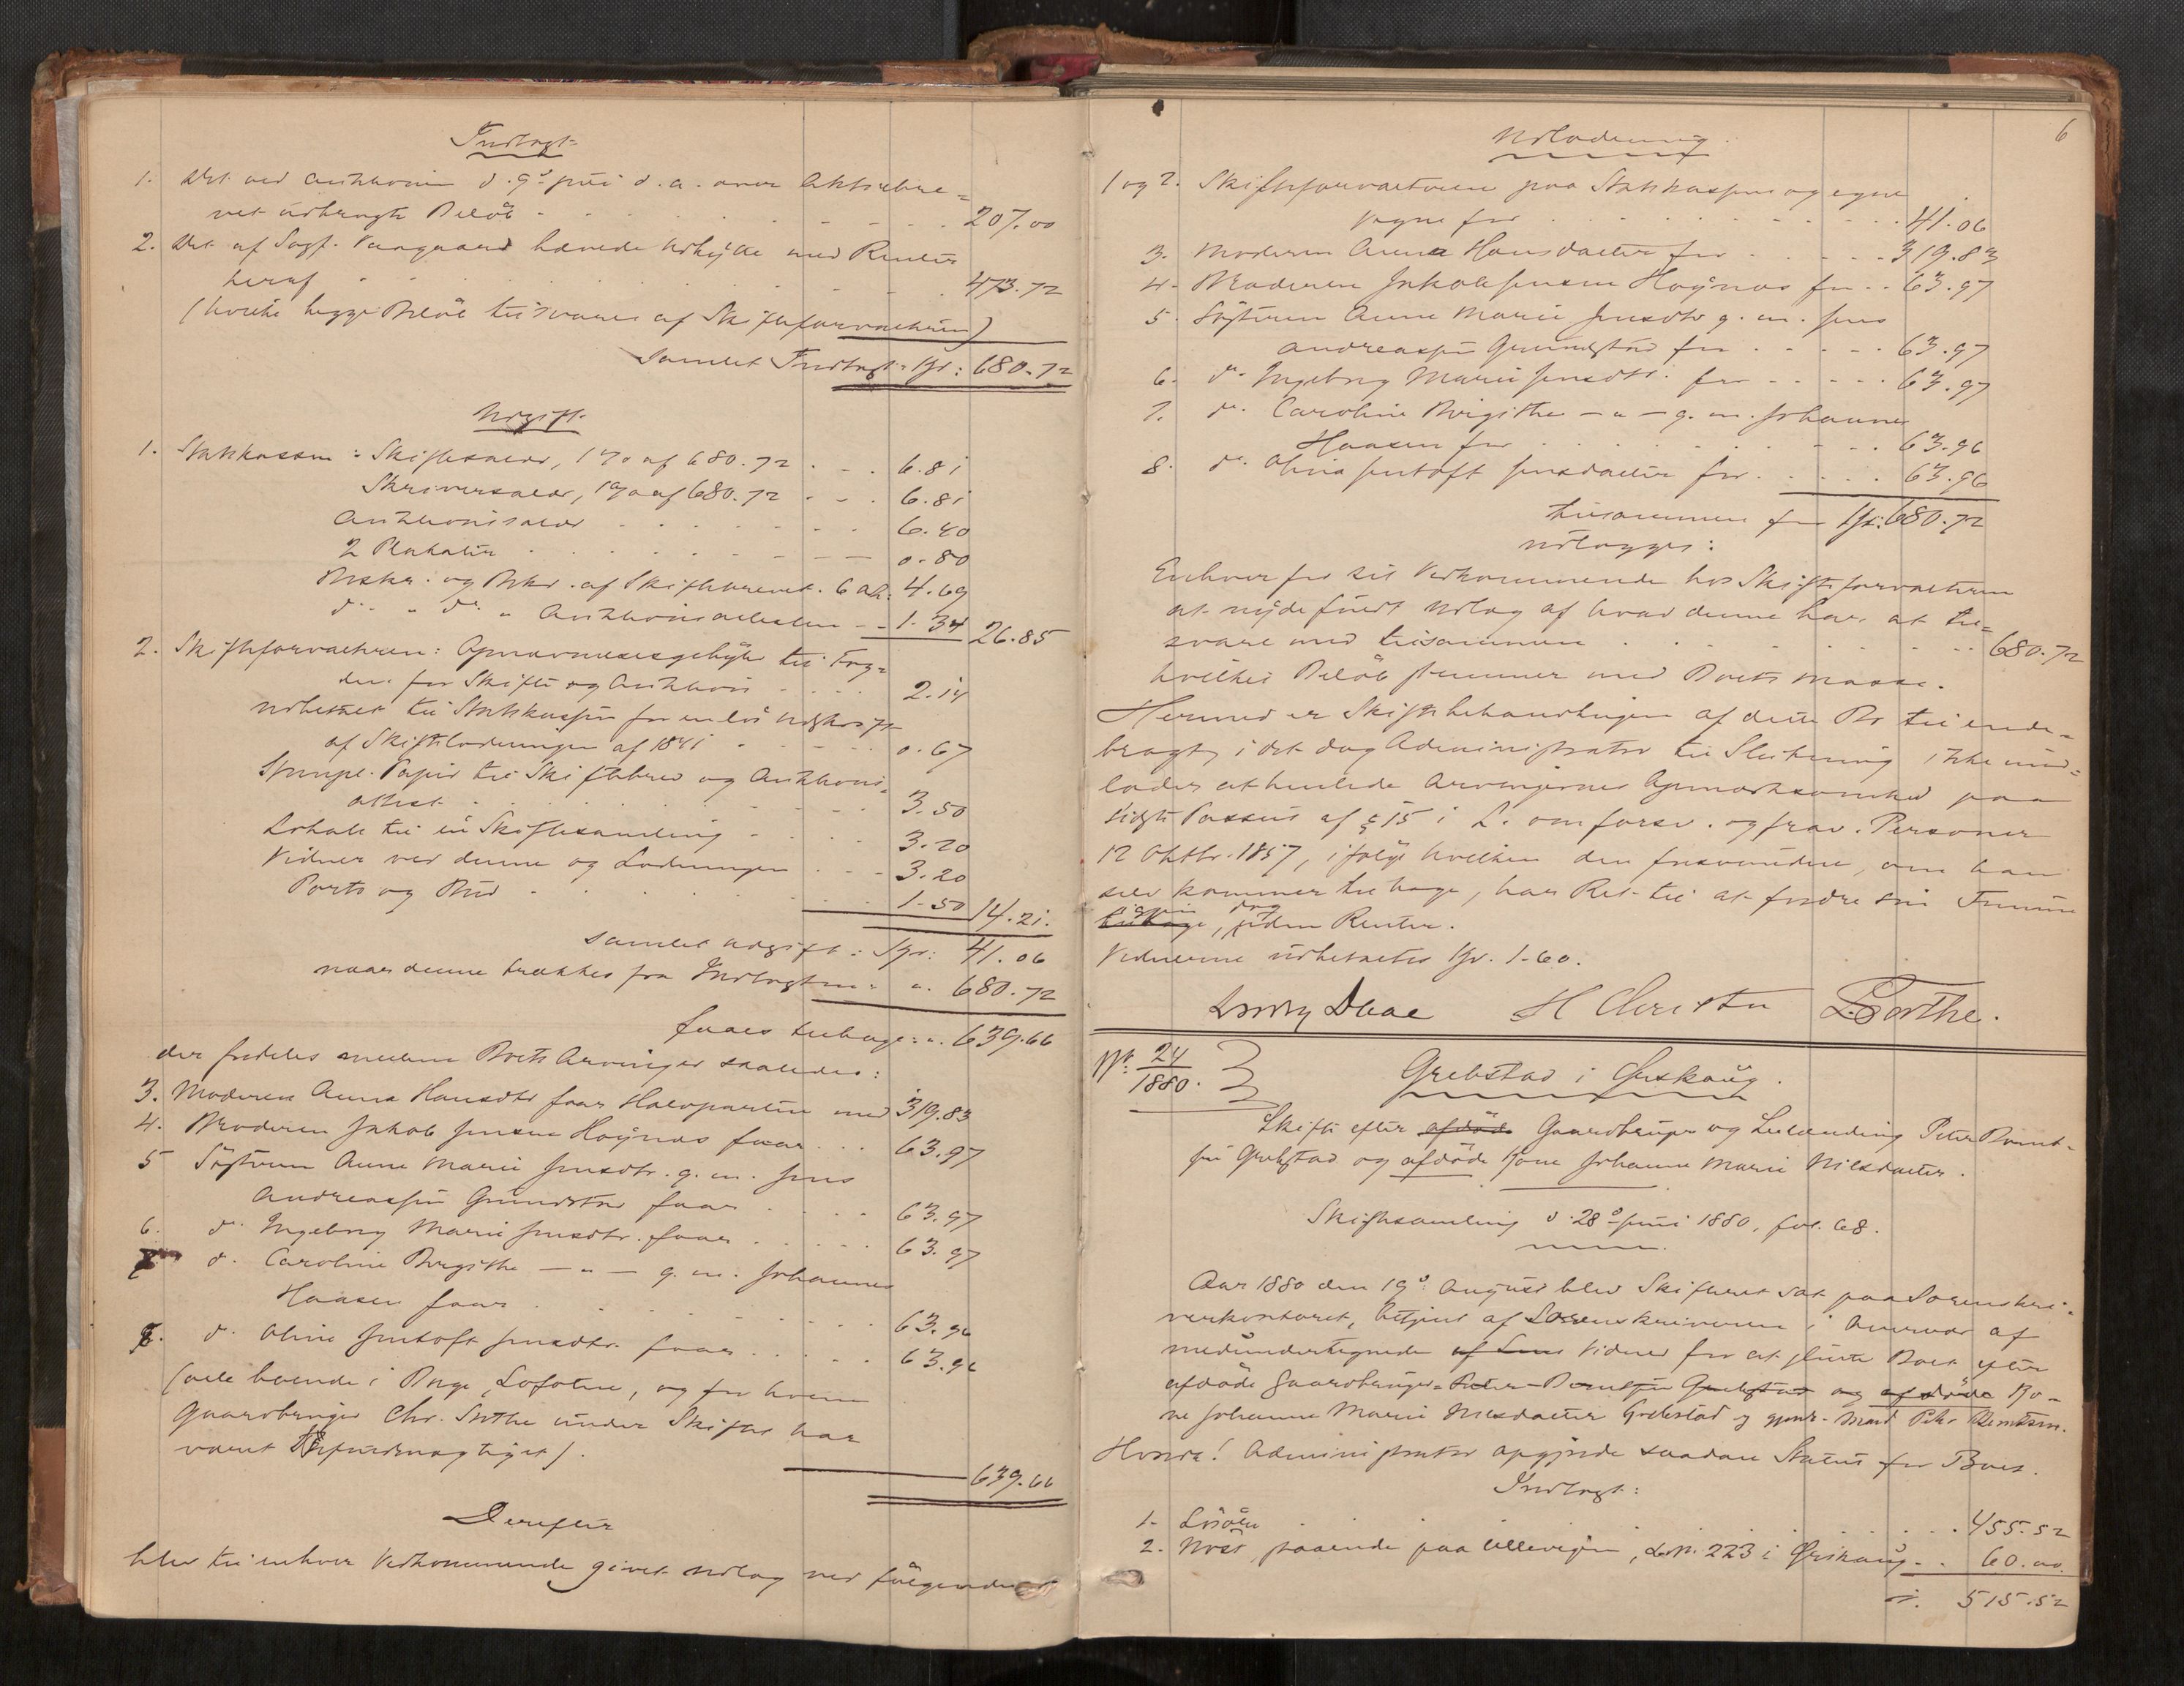 Indtægt.
1. Det ved Auktionen d. 9de Juni d. a. over Aktiebre-
vet udbragte Beløb . . . 207.00
2. Det af Sagf. Vaagaard hævede Udbytte med Renter
heraf . . . 473.72
(hvilke begge Beløb tilsvares af Skifteforvalteren)
Samlet Indtægt: Kr: 680.72
Udgift.
1. Statskassen: Skiftesalær, 1% af 680.72 . . . 6.81
Skriversalær, 1% af 680.72 . . . 6.81
Auktionssalær . . . 6.40
2 Plakater . . . 0.80
Beskr. og Bekr. af Skiftebrevet. 6 Ark: 4.69
do " do " Auktionsattesten - - 1.34 26.85
2. Skifteforvalteren: Opnævnelsesgebyhr til Fog-
den for Skifte og Auktion . . . 2.14
Udbetalt til Statskassen for en løs Udskrift
af Skifteslutningen af 1841 . . . 0.67
Stempl. Papir til Skiftebrev og Auktions-
attest . . . 3.50
Lokale til en Skiftesamling . . . 3.20
Vidner ved denne og Slutningen . . . 3.20
Porto og Bud . . . 1.50 14.21.
Samlet Udgift: Kr: 41.06
naar denne trækkes fra Indtægten: " 680.72
faaes tilbage: " 639.66
der fordeles mellem Boets Arvinger saaledes:
3. Moderen Anna Hansdtr faar Halvparten med 319.83
4. Broderen Jakob Jensen Høynæs faar . . . 63.97
5 Søsteren Anne Marie Jensdtr. g. m. Jens
Andreassen Grundstad faar . . . 63.97
6. do Ingeborg Marie Jensdtr. faar . . . 63.97
7. do Caroline Birgithe — " — g. m. Johannes
Haasen faar . . . 63.96
8. do Oline Jentoft Jensdtr. faar . . . 63.96
(alle boende i Borge, Lofoten, og for hvem
Gaardbruger Chr. Sethe under Skiftet har
været Befuldmægtiget).
639.66
Derefter
blev til enhver Vedkommende givet Udlæg ved følgende
6
Udlodning.
1 og 2. Skifteforvalteren paa Statskassens og egne
Vegne for . . . 41.06
3. Moderen Anna Hansdatter for . . . 319.83
4. Broderen Jakob Jensen Høynæs for . . 63.97
5. Søsteren Anne Marie Jensdtr g. m. Jens
Andreassen Grundstad for . . . 63.97
6. do Ingeborg Marie Jensdtr. for . . . 63.97
7. do Caroline Birgithe — " — g. m. Johannes
Haasen for . . . 63.96
8. do Olina Jentoft Jensdatter for . . . 63.96
tilsammen for Kr: 680.72
udlægges:
Enhver for sit Vedkommende hos Skifteforvalteren
at nyde fuldt Udlæg af hvad denne har at til-
svare med tilsammen . . . 680.72
hvilket Beløb stemmer med Boets Masse.
Hermed er Skiftebehandlingen af dette Bo tilende-
bragt, idet dog Administrator til Slutning ikke und-
lader at henlede Arvingernes Opmærksomhed paa
sidste Passus af § 15 i L. om forsv. og frav. Personer
12 Oktbr. 1857, ifølge hvilken den forsvundne, om han
selv kommer tilbage, har Ret til at fordre sin Formue
igjen dog
tilbage, uden Renter.
Vidnerne udbetaltes Kr. 1-60.
Ludvig Daae H Christu L. Borthe.
No: 24/1880.
Grebstad i Ørskoug.
Skifte efter afdøde Gaardbruger og Lensmand Peter Bernt-
sen Grebstad og afdøde Kone Johanne Marie Nilsdatter.
Skiftesamling d. 28de Juni 1880, fol. 68.
Aar 1880 den 19de August blev Skifteret sat paa Sorenskri-
verkontoret, betjent af Sorenskriveren i Overvær af
medundertegnede af Lens Vidner for at slutte Boet efter
afdøde Gaardbruger Peter Berntsen Grebstad og afdøde Ko-
ne Johanne Marie Nilsdatter Grebstad og gjenl. Mand Peter Berntsen.
Hvorda! Administrator opgjorde saadan Status for Boet.
Indtægt:
1. Løsøre . . . 455.52
2. Nøst, staaende paa Ellevigen, Løb. 223 i Ørskoug . . 60.00.
Tr. 515.52